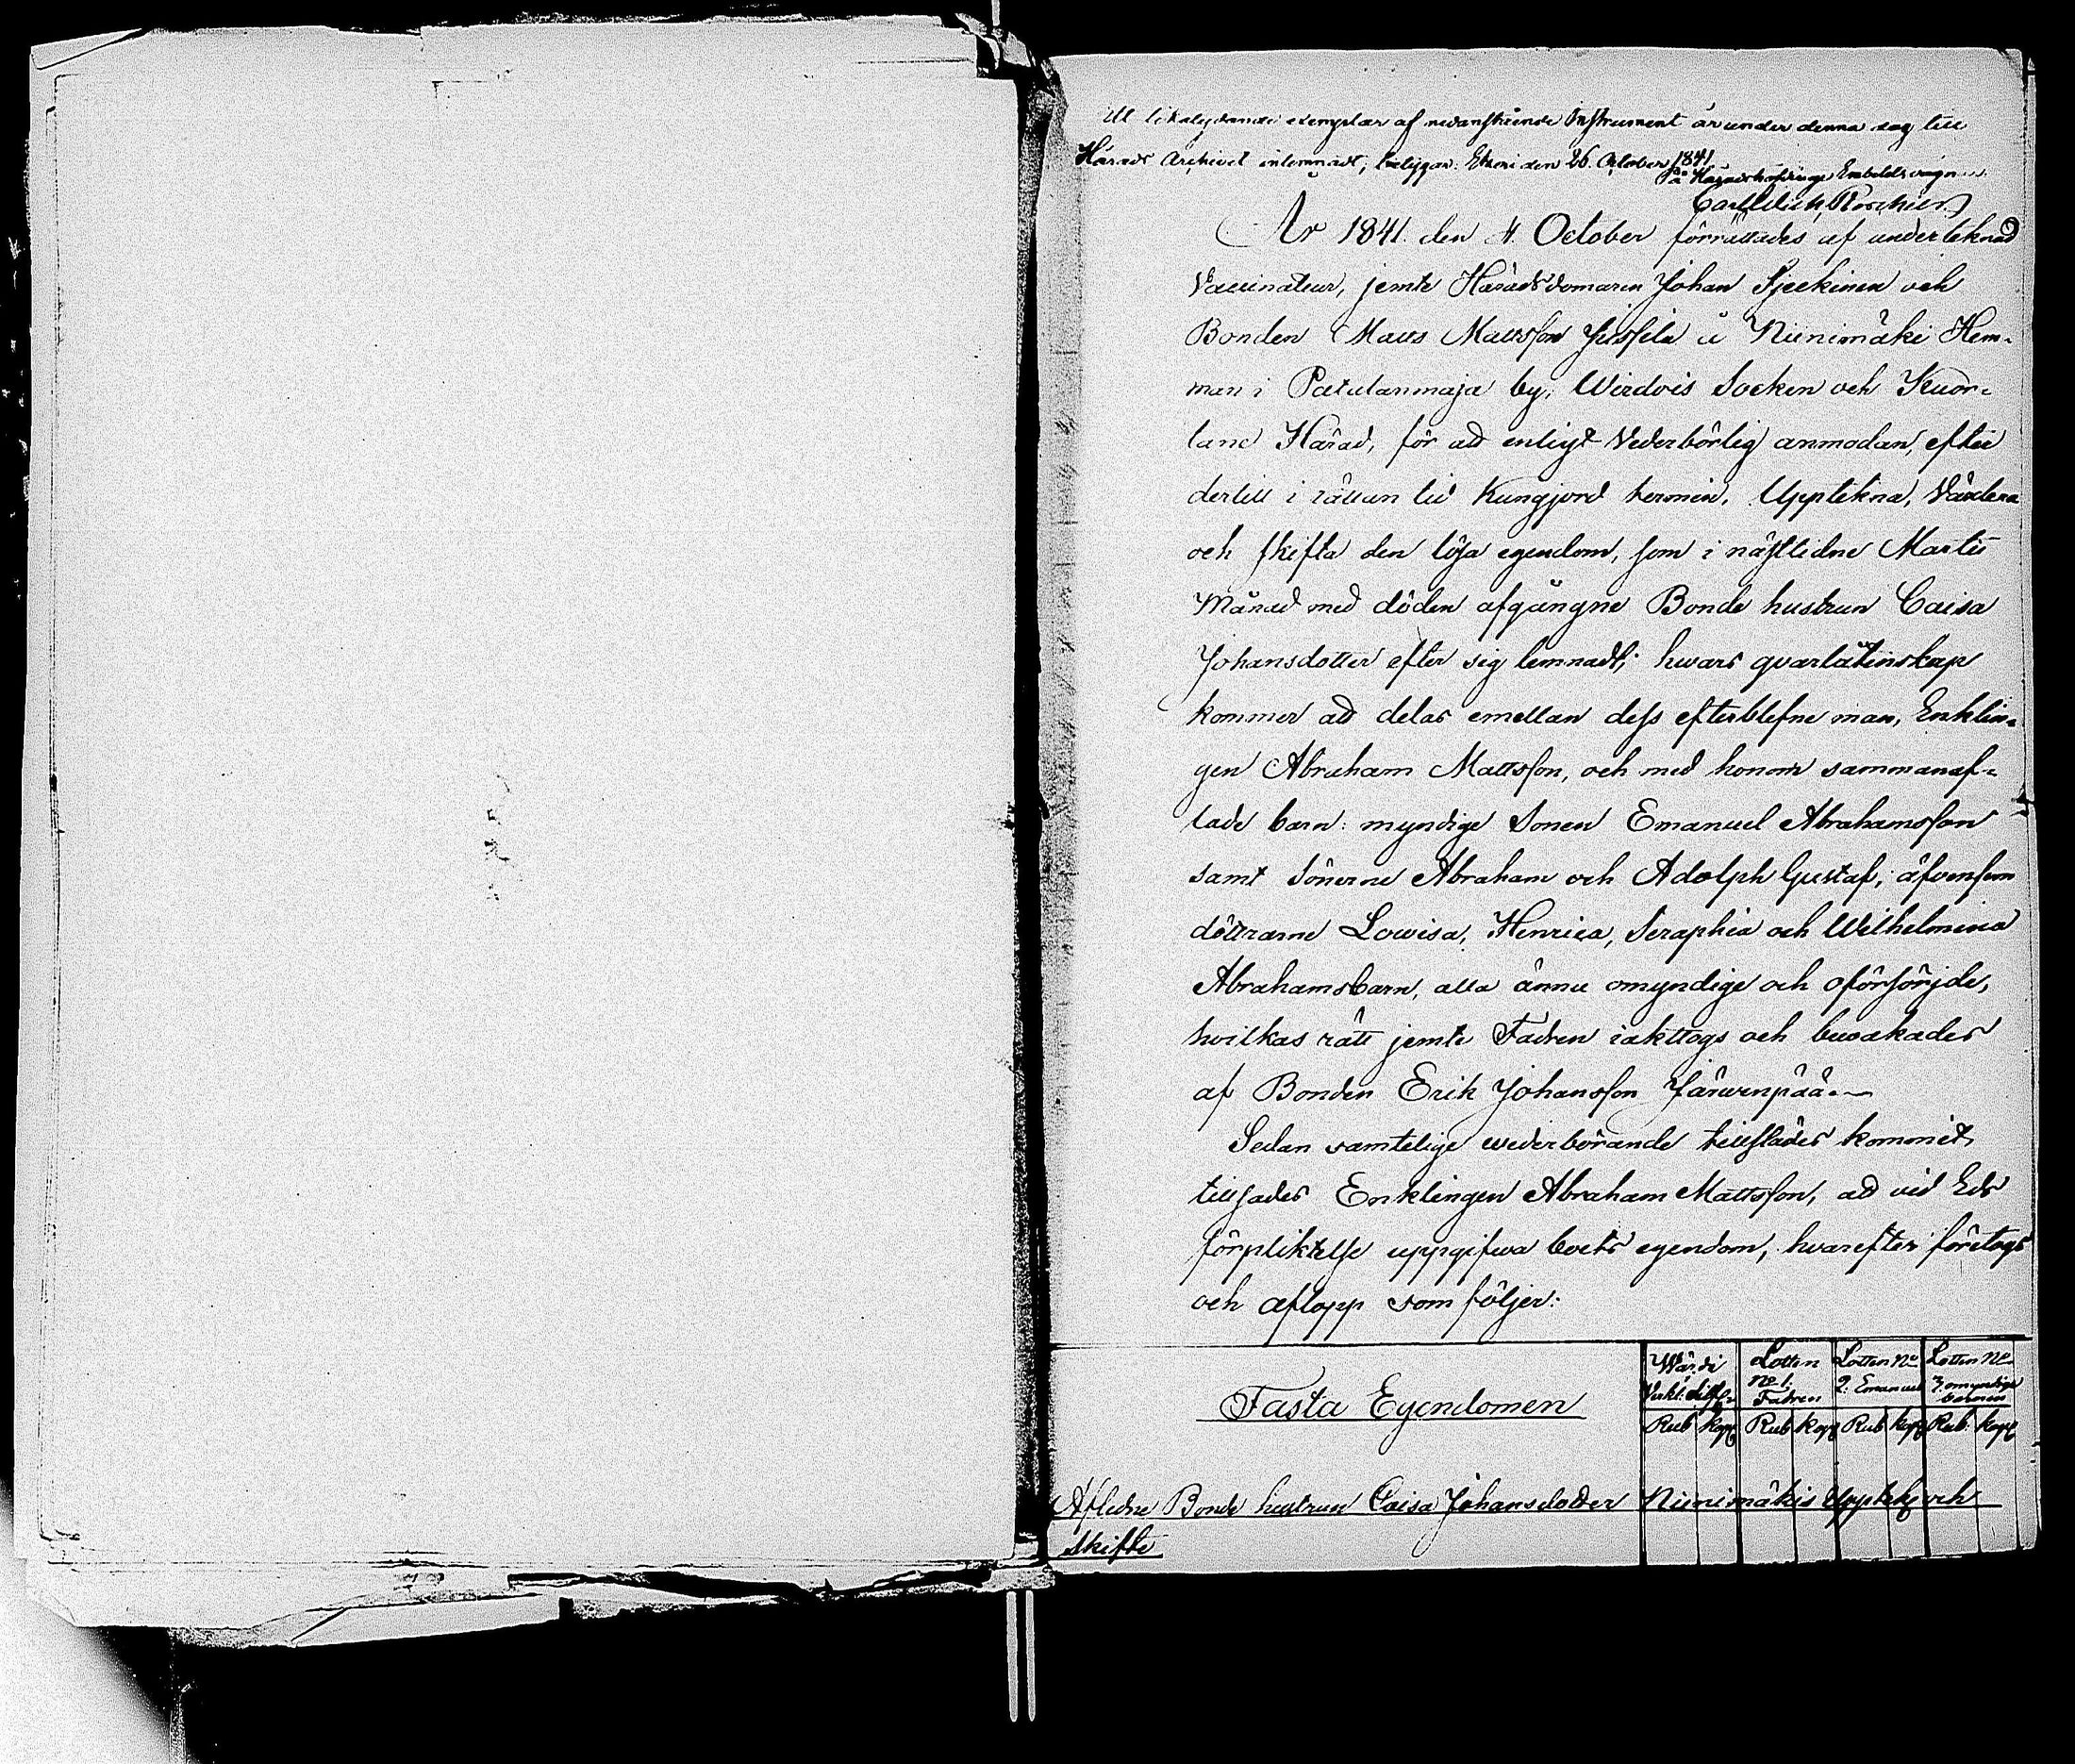 likalydande exemplar af nedanstående Instrument är under denna dag till
Härads Archivet inlemnadt, betygar. Etseri den 26. October 1841
På Häradshöfdinge Embetets vägnar
Carl
År 1841. den 4. October förrättades af underteknad
Vaccinateur, jemte Häradsdomaren Johan Sjeckinen och
Bonden Matts Mattsson Jussila å Niinimäki Hem-
man i by, Wirdois Socken och Kuor-
tane Härad, för att enligt Vederbörlig anmodan, efter
dertill i rättan tid Kungjord termin, Upptekna, Värdera
och skifta den lösa egendom, som i nästlidne Martii
Månad med döden afgångne Bonde hustrun Caisa
Johansdotter efter sig lemnadt; hwars qvarlåtenskap
kommer att delas emellan dess efterblefne man, Enklin-
gen Abraham Mattsson, och med honom sammanaf-
lade barn: myndige Sonen Emanuel Abrahamsson
samt Sönerne Abraham och Adolph Gustaf, äfvensom
döttrarne Lowisa, Henrica, Seraphia och Wilhelmina
Abrahamsbarn, alla ännu omyndige och oförsörjde,
hvilkas rätt jemte Fadren iakttogs och bevakades
af Bonden Erik Johansson Järwenpää.
Sedan samtelige wederbörande tillstädes kommit,
tillsades Enklingen Abraham Mattsson, att vid Eds
förpliktelse uppgifwa boets egendom, hwarefter företogs
och aflopp som följer:
Fasta Egendomen
Wärdi Lotten Lotten No Lotten No
No 1. 2: Emanuel 3: omyndige
Fadren barnen
Rub kop Rub kop Rub kop Rub. kop
Aflidne Bonde hustrun Caisa Johansdotter Niinimäkis Upptekn och
Skifte